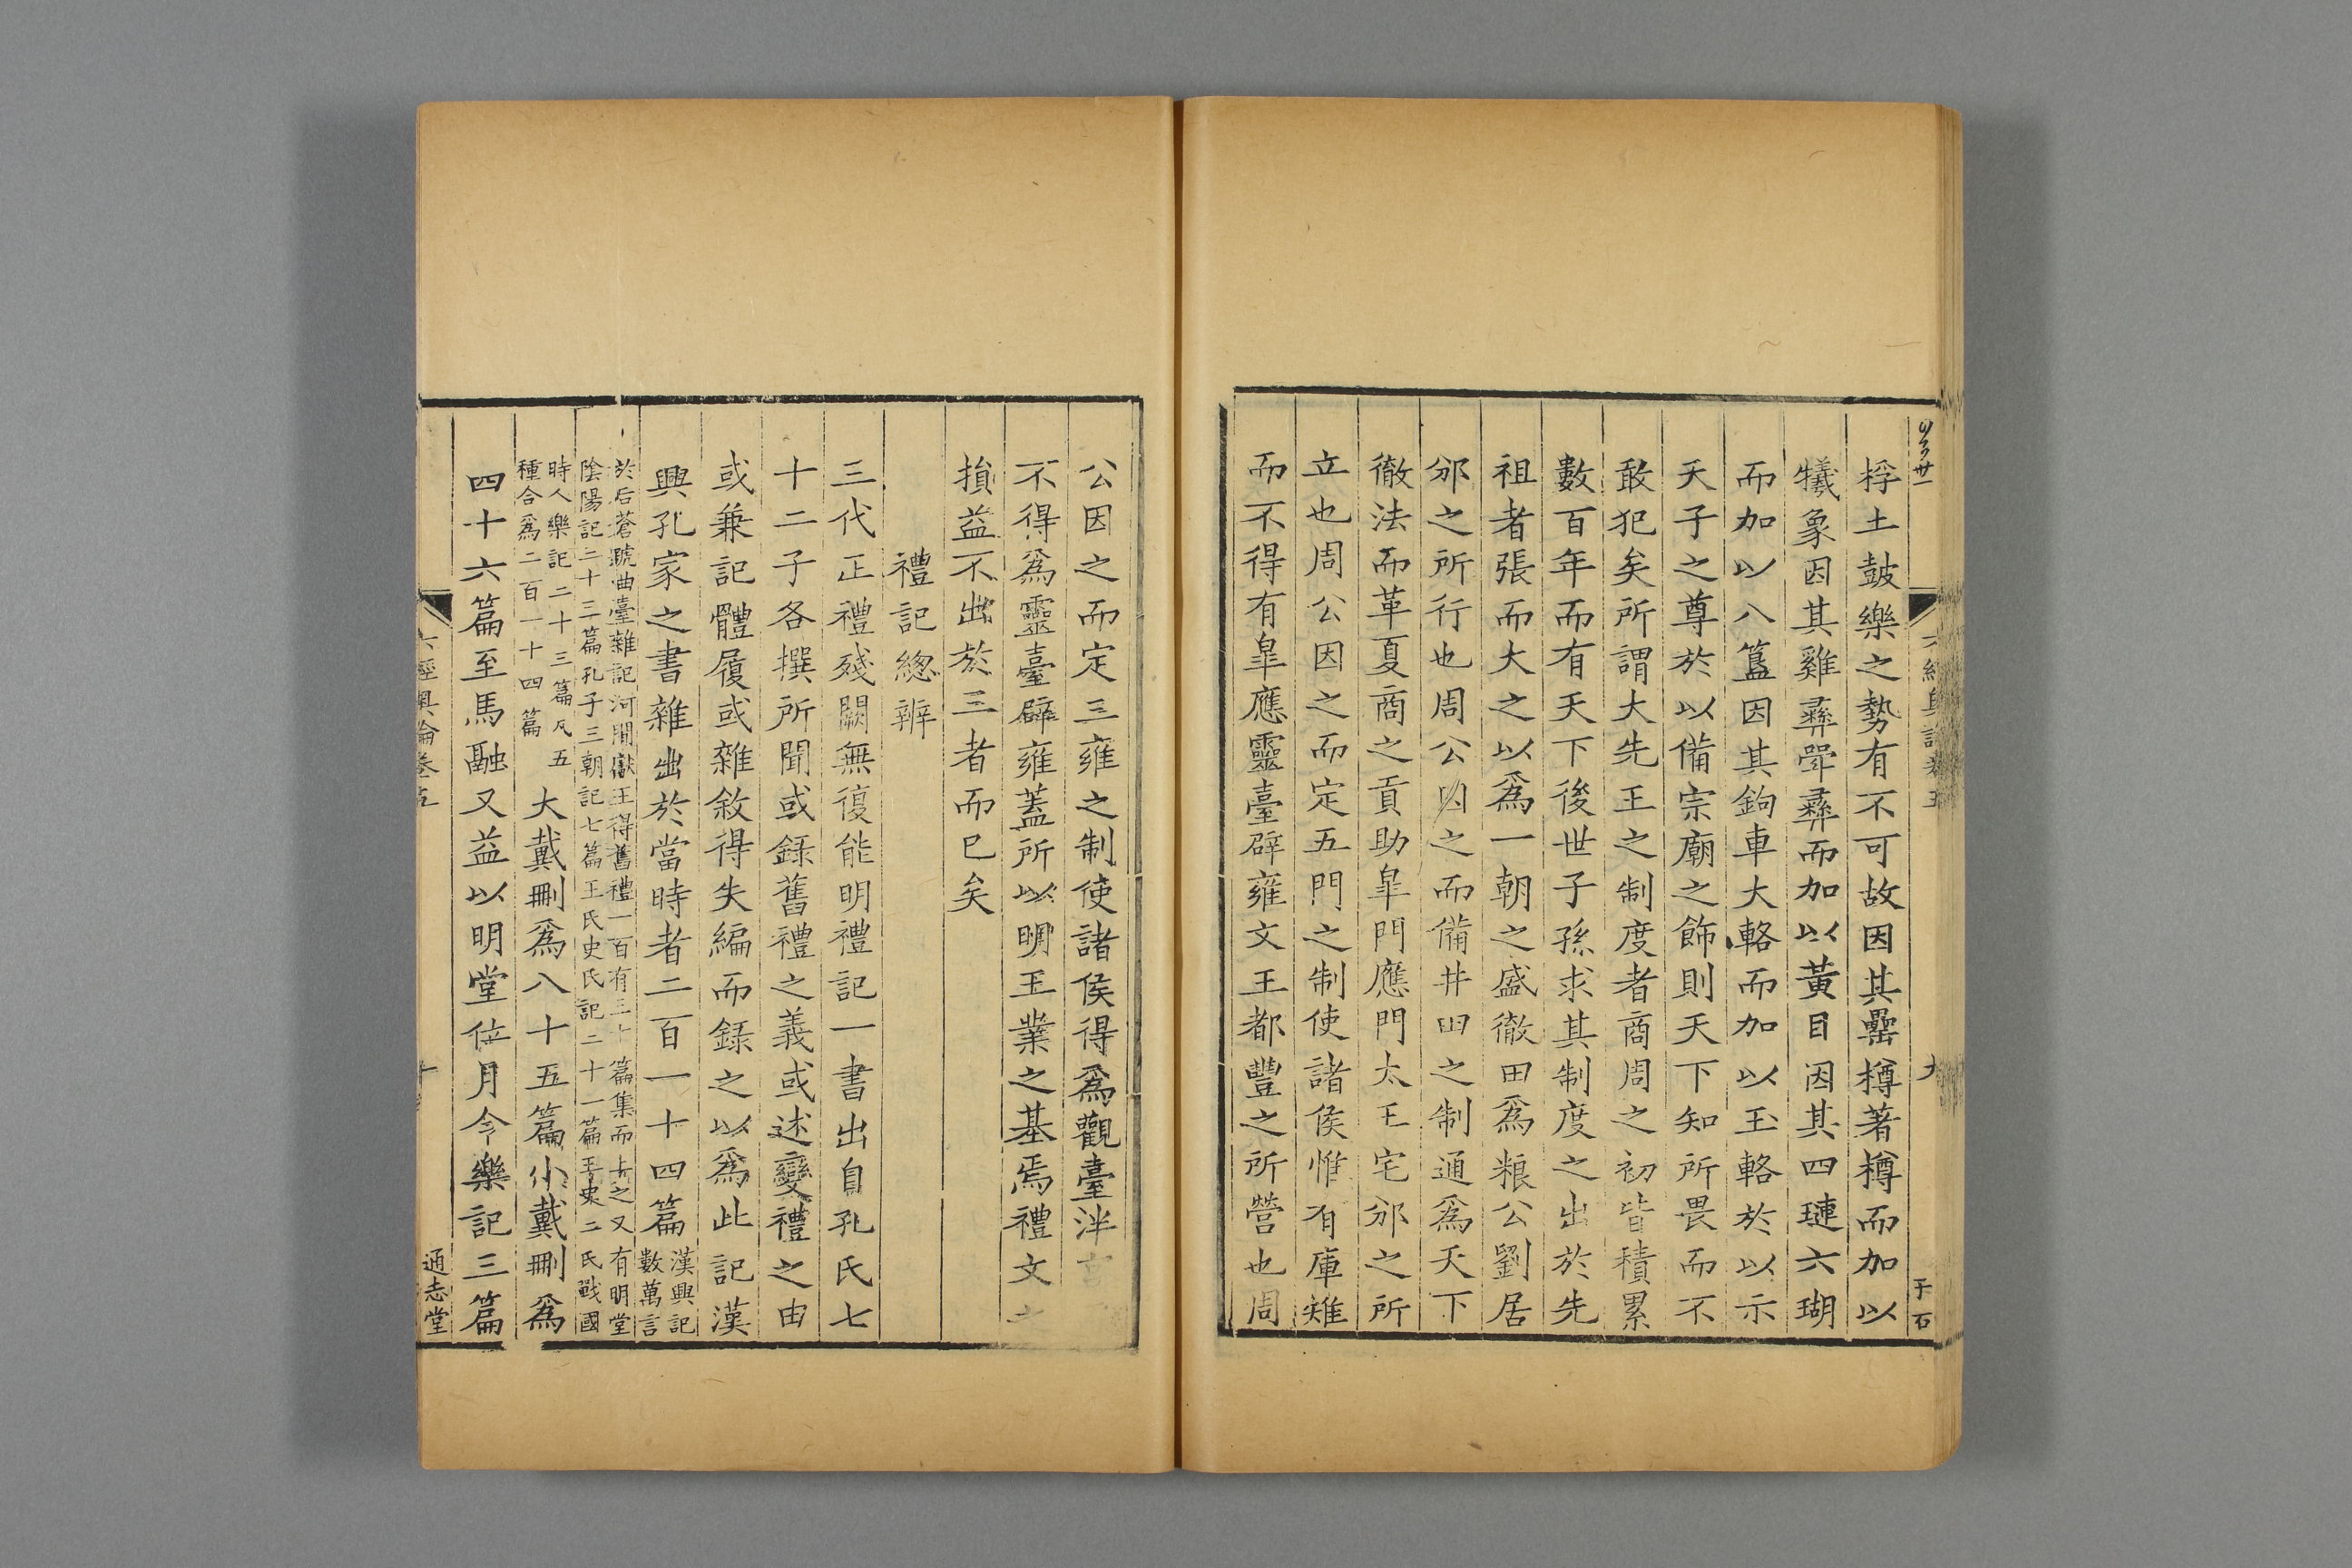 桴土鼓樂之勢有不可故因其罍樽著樽而加以
犧象因其雞彝斝彝而加以黃目因其四璉六瑚
而加以八簋因其鉤車大輅而加以玉輅於以示
天子之尊於以備宗廟之飾則天下知所畏而不
敢犯矣所謂大先王之制度者商周之初皆積累
數百年而有天下後世子孫求其制度之出於先
祖者張而大之以爲一朝之盛徹田爲粮公劉居
邠之所行也周公因之而備井田之制通爲天下
徹法而革夏商之貢助皐門應門太王宅邠之所
立也周公因之而定五門之制使諸侯惟有庫雉
而不得有皐應靈臺辟雍文王都豐之所營也周
九
于石
公因之而定三雍之制使諸侯得爲觀臺泮
不得爲靈臺辟雍蓋所以明王業之基焉禮文
損益不出於三者而已矣
禮記總辨
三代正禮殘闕無復能明禮記一書出自孔氏七
十二子各撰所聞或錄舊禮之義或述變禮之由
或兼記體履或雜敘得失編而錄之以爲此記漢
興孔家之書雜出於當時者二百一十四篇漢興記
數萬言
於后蒼號曲臺雜記河間獻王得舊禮一百有三十篇集而上之又有明堂
陰陽記二十三篇孔子三朝記七篇王氏史氏記二十一篇王史二氏戰國
時人樂記二十三篇凡五
種合爲二百一十四篇
大戴刪爲八十五篇小戴刪爲
四十六篇至馬融又益以明堂位月令樂記三篇
六經奧論卷五
十
通志堂